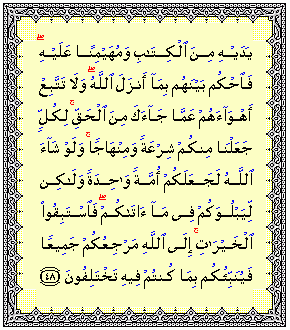 يَدَيْهِ مِنَ ٱلْكِتَـٰبِ وَمُهَيْمِنًا عَلَيْهِ ۖ
فَٱحْكُم بَيْنَهُم بِمَآ أَنزَلَ ٱللَّهُ ۖ وَلَا تَتَّبِعْ
أَهْوَآءَهُمْ عَمَّا جَآءَكَ مِنَ ٱلْحَقِّ ۚ لِكُلٍّ
جَعَلْنَا مِنكُمْ شِرْعَةً وَمِنْهَاجًا ۚ وَلَوْ شَآءَ
ٱللَّهُ لَجَعَلَكُمْ أُمَّةً وَٰحِدَةً وَلَـٰكِن
لِّيَبْلُوَكُمْ فِى مَآ ءَاتَىٰكُمْ ۖ فَٱسْتَبِقُوا۟
ٱلْخَيْرَٰتِ ۚ إِلَى ٱللَّهِ مَرْجِعُكُمْ جَمِيعًا
فَيُنَبِّئُكُم بِمَا كُنتُمْ فِيهِ تَخْتَلِفُونَ ﴿٤٨﴾